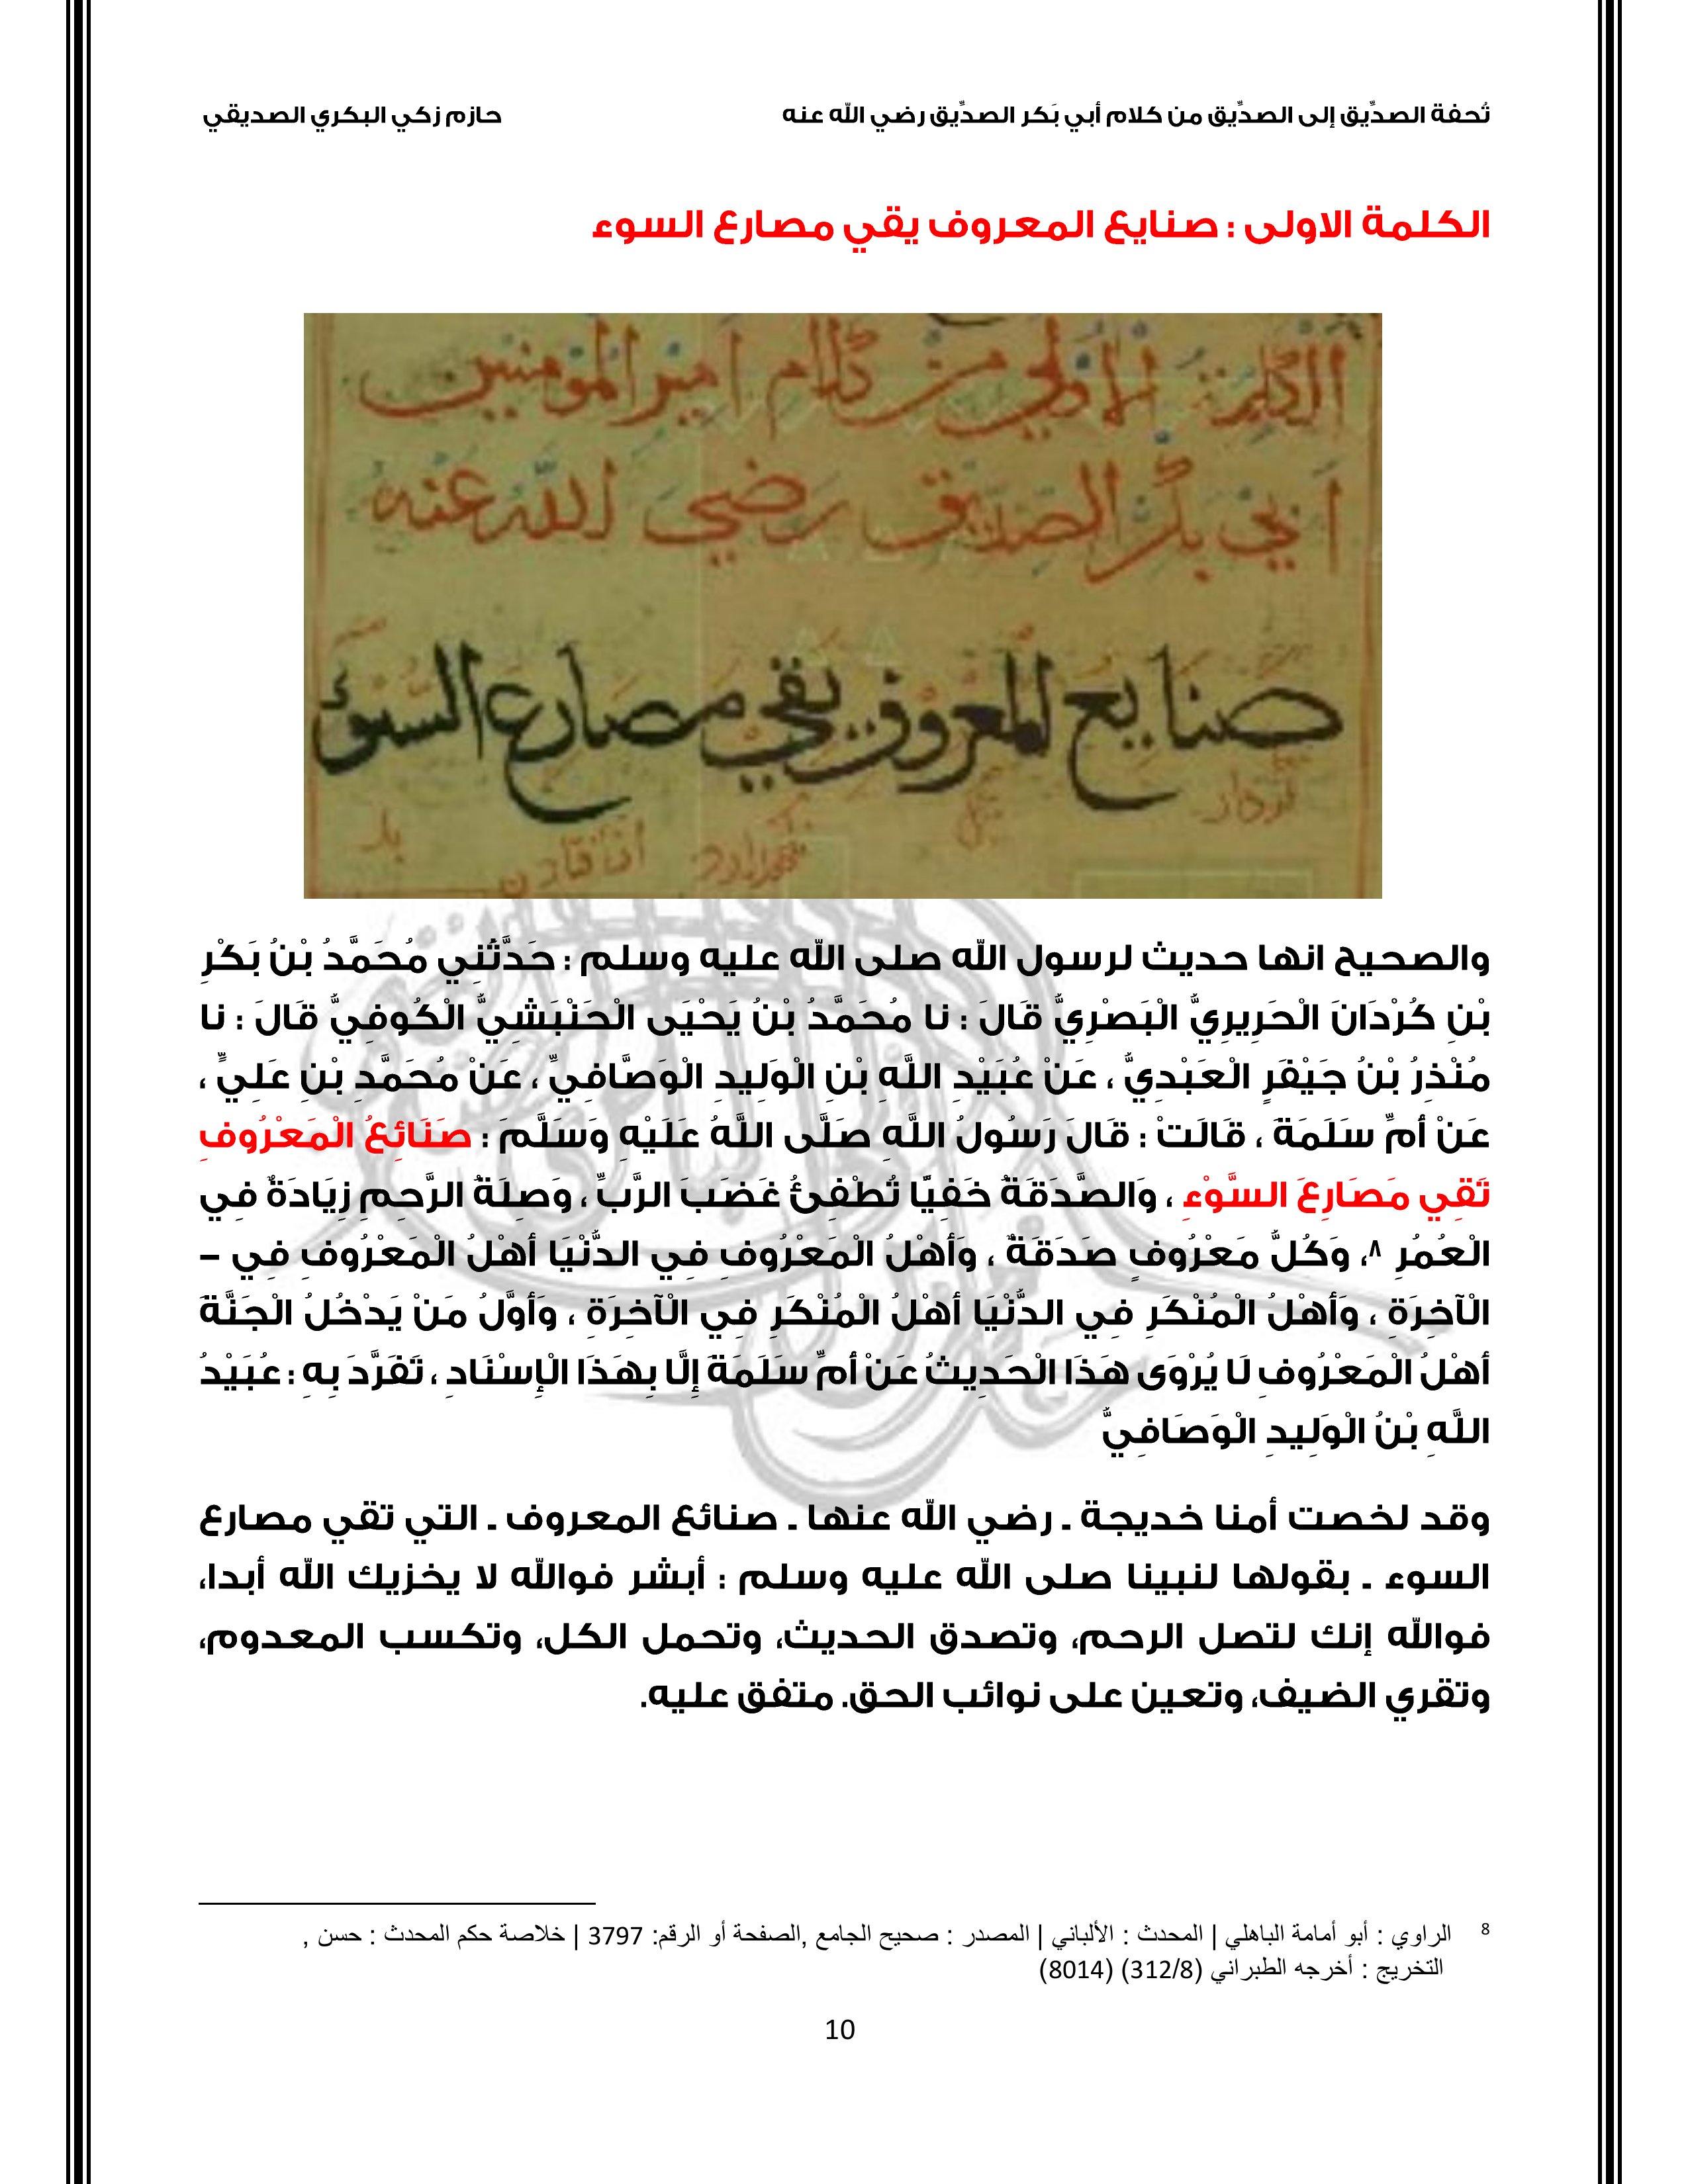 تُحفة الصدِّيق إلى الصدِّيق من كلام أبي بَكر الصدِّيق رضي الله عنه حازم زكي البكري الصديقي
الكلمة الاولى : صنايع المعروف يقي مصارع السوء
الكلمة الاولى من كلام امير المؤمنين
ابي بكر الصديق رضي الله عنه
صنايع المعروف يقي مصارع السوء
والصحيح انها حديث لرسول الله صلى الله عليه وسلم : حَدَّثَنِي مُحَمَّدُ بْنُ بَكْرِ
بْنِ كُرْدَانَ الْحَرِيرِيُّ الْبَصْرِيُّ قَالَ : نا مُحَمَّدُ بْنُ يَحْيَى الْحَنْبَشِيُّ الْكُوفِيُّ قَالَ : نا
مُنْذِرُ بْنُ جَيْفَرٍ الْعَبْدِيُّ ، عَنْ عُبَيْدِ اللَّهِ بْنِ الْوَلِيدِ الْوَصَّافِيِّ ، عَنْ مُحَمَّدِ بْنِ عَلِيٍّ ،
عَنْ أُمِّ سَلَمَةَ ، قَالَتْ : قَالَ رَسُولُ اللَّهِ صَلَّى اللَّهُ عَلَيْهِ وَسَلَّمَ : صَنَائِعُ الْمَعْرُوفِ
تَقِي مَصَارِعَ السَّوْءِ ، وَالصَّدَقَةُ خَفِيًّا تُطْفِئُ غَضَبَ الرَّبِّ ، وَصِلَةُ الرَّحِمِ زِيَادَةٌ فِي
الْعُمُرِ ٨، وَكُلُّ مَعْرُوفٍ صَدَقَةٌ ، وَأَهْلُ الْمَعْرُوفِ فِي الدُّنْيَا أَهْلُ الْمَعْرُوفِ فِي –
الْآخِرَةِ ، وَأَهْلُ الْمُنْكَرِ فِي الدُّنْيَا أَهْلُ الْمُنْكَرِ فِي الْآخِرَةِ ، وَأَوَّلُ مَنْ يَدْخُلُ الْجَنَّةَ
أَهْلُ الْمَعْرُوفِ لَا يُرْوَى هَذَا الْحَدِيثُ عَنْ أُمِّ سَلَمَةَ إِلَّا بِهَذَا الْإِسْنَادِ ، تَفَرَّدَ بِهِ : عُبَيْدُ
اللَّهِ بْنُ الْوَلِيدِ الْوَصَافِيُّ
وقد لخصت أمنا خديجة ـ رضي الله عنها ـ صنائع المعروف ـ التي تقي مصارع
السوء ـ بقولها لنبينا صلى الله عليه وسلم : أبشر فوالله لا يخزيك الله أبدا،
فوالله إنك لتصل الرحم، وتصدق الحديث، وتحمل الكل، وتكسب المعدوم،
وتقري الضيف، وتعين على نوائب الحق. متفق عليه.
8 الراوي : أبو أمامة الباهلي | المحدث : الألباني | المصدر : صحيح الجامع ,الصفحة أو الرقم: 3797 | خلاصة حكم المحدث : حسن ,
التخريج : أخرجه الطبراني (312/8) (8014)
10